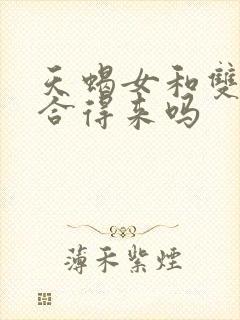 天蝎女和雙
合得来吗
薄禾紫煙